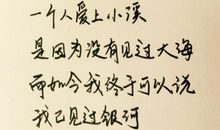 一个人爱上小溪
是因为没有见过大海
而如今我终于可以说
我已见过银河